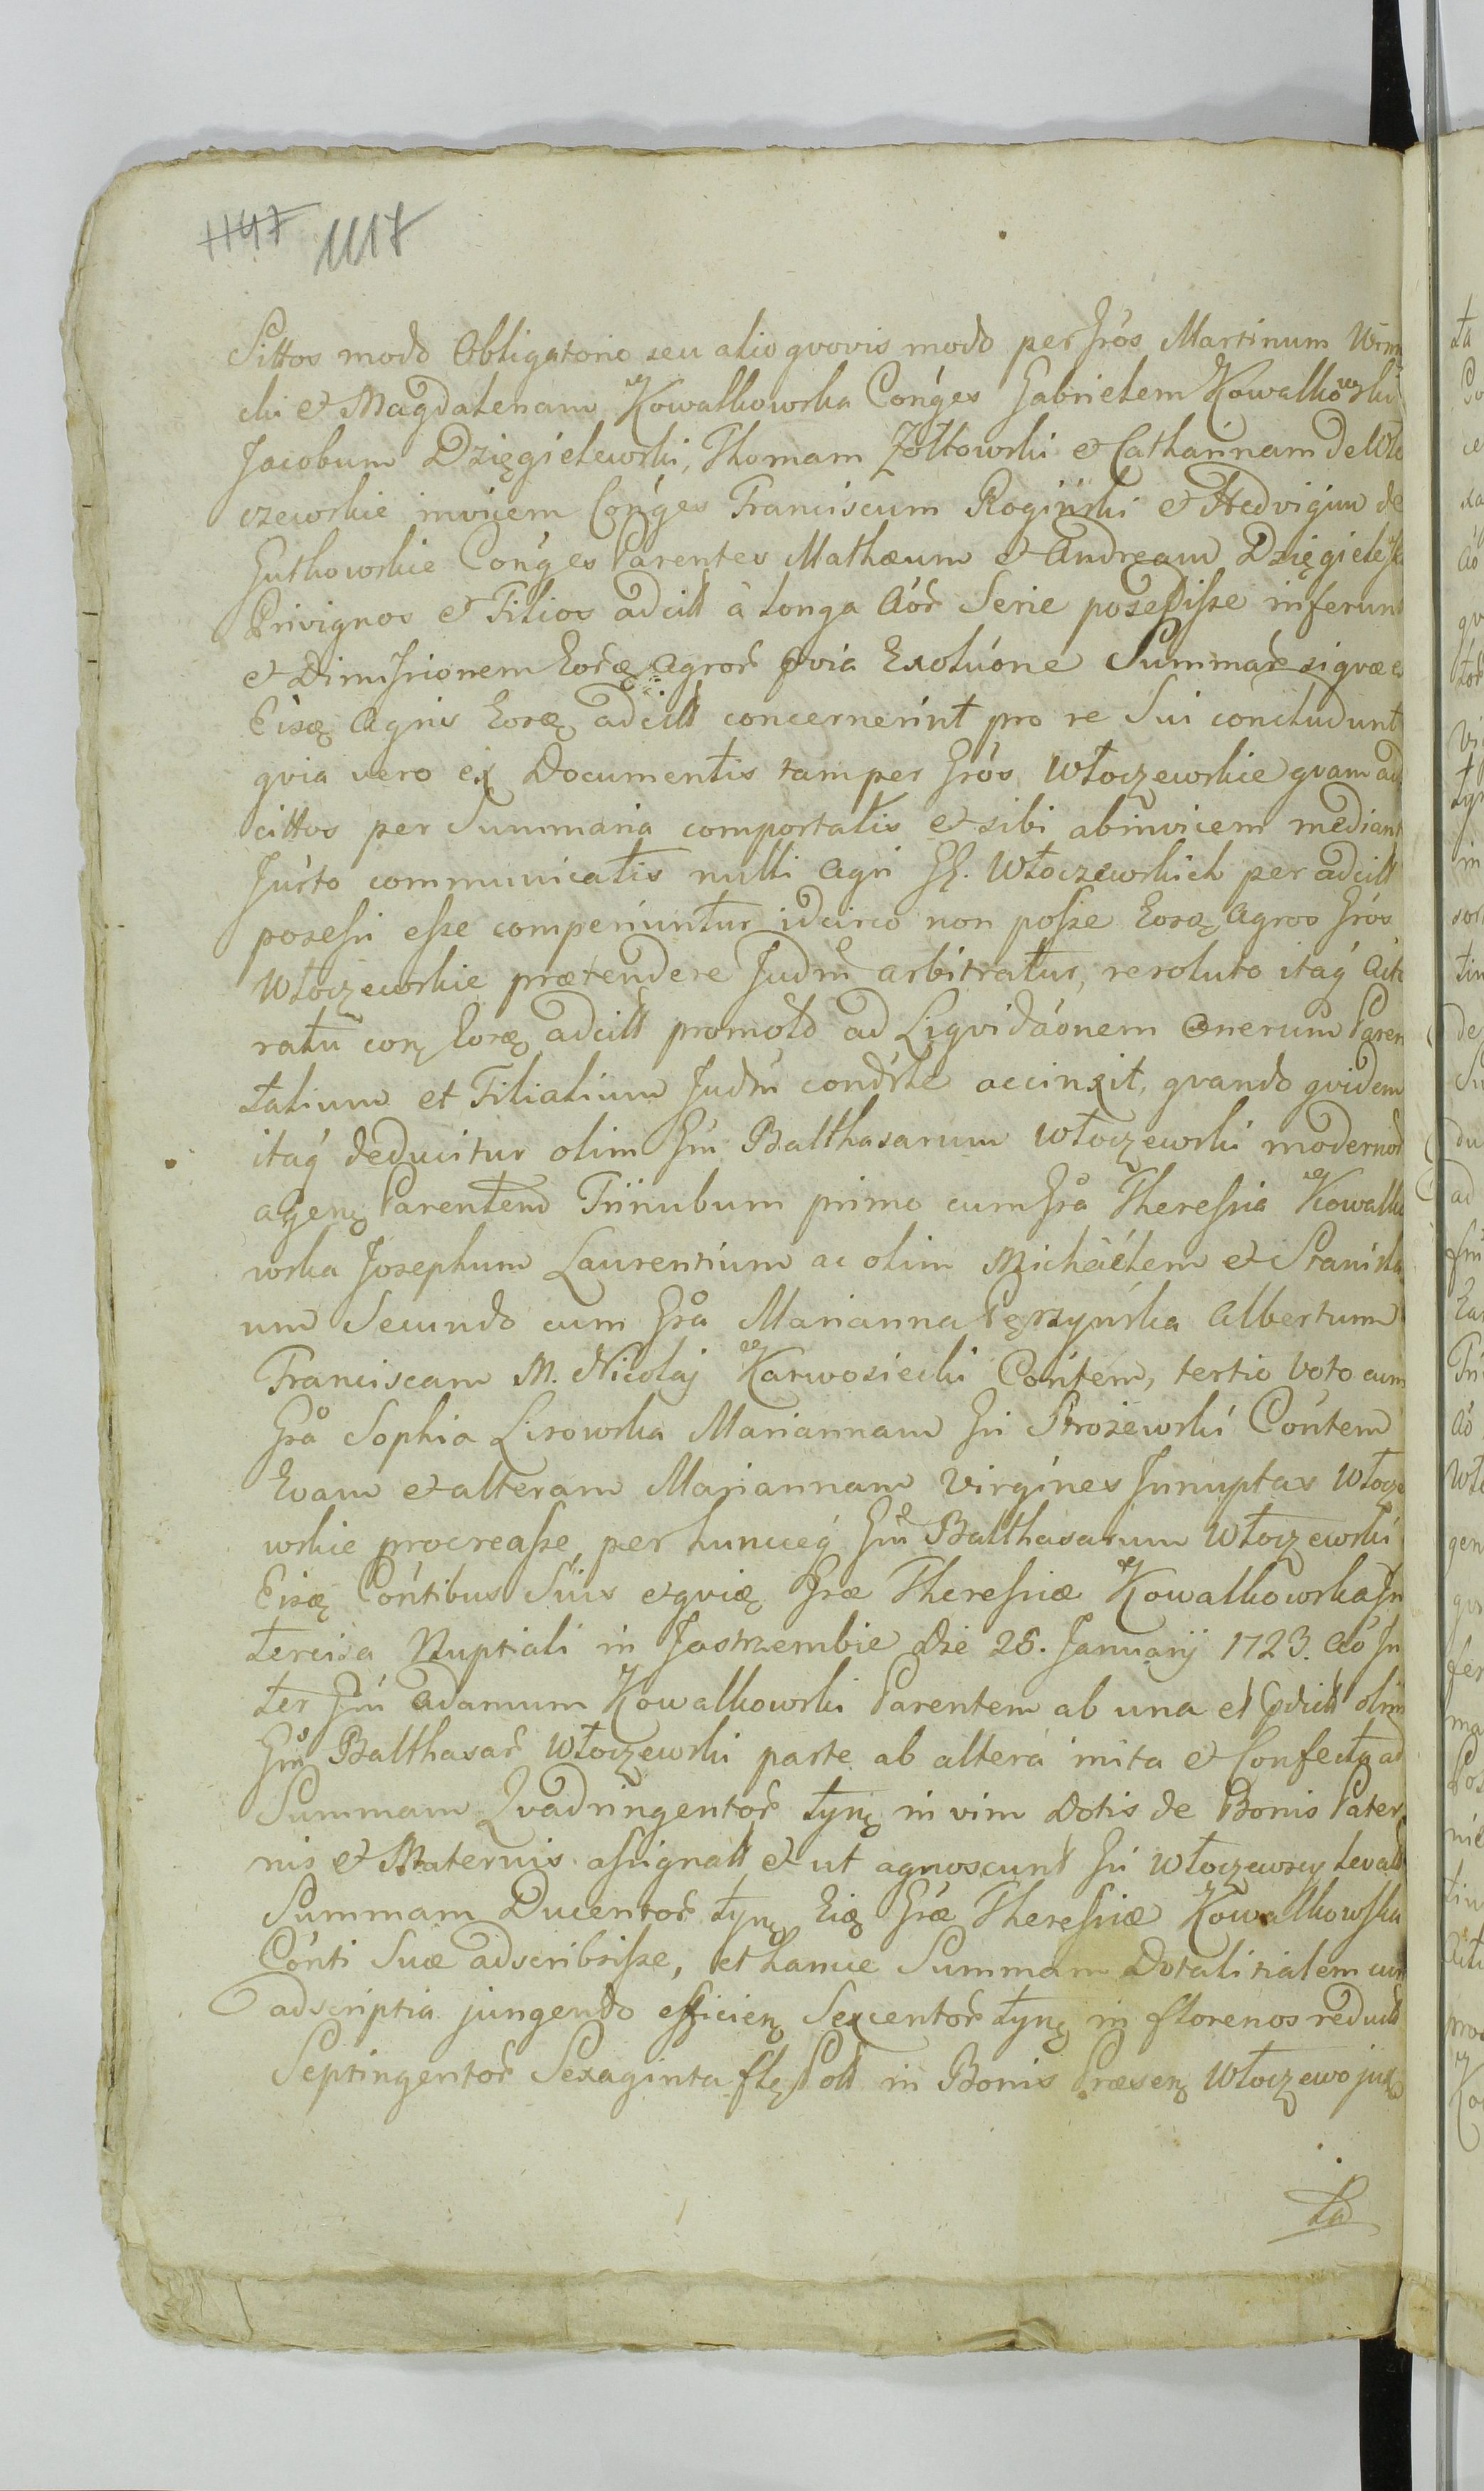 1147 1117
Sittos modo Obligatorio seu alio qvovis modo per Gros Martinum
cki et Magdalenam Kowalkowska Conges Gabrielem Kowalkowski
Jacobum Dzięgielewski, Thomam Zołtowski et Catharinnam de Wło
czewskie invicem Conges Franciscum Rogiński et Hedvigim de
Gutkowskie Conges Parentes Mathæum et Andream Dzięgielews
Privignos et Filios adcitt à longa Aor Serie posedisse inferunt
et Dimissionem Eorq Agror qvia Exoluone Summar siqvæ
Eisq Agris Eorq adcitt concernerint pro re Sui concludunt
qvia vero ex Documentis tam per Gros Włoczewskie qvam ad
cittos per Summaria comportatis et sibi abinvicem mediant
Justo communicatis nulli Agri GG. Włoczewskich per adcitt
possessi esse comperiuntur idcirco non posse Eosq Agros Gros
Włoczewskie prætendere Judm arbitratur, resoluto itaq Acto
ratu conq Eorq adcitt promoto ad Liqvidaonem Onerum Paren
talium et Filialium Judm condrle accinxit, qvando qvidem
itaq deducitur olim Gm Balthasarum Włoczewski modernor
agenq Parentem Triinubum primo cum Gra Theressia Kowalko
wska Josephum Laurentium ac olim Michäelem et Stanisla
um Secundo cum Gra Marianna Pęrzyńska Albertum
Franciscam M. Nicolaj Karwosiecki Contem, tertio voto cum
Gra Sophia Lisowska Mariannam Gsi Strożewski Contem
Evam et alteram Mariannam Virgines Innuptas Włocze
wskie procreasse, per huncceq Gm Balthasarum Włoczewski
Eisq Contibus Suis et qviq Græ Theressiæ Kowalkowska In
tercisa Nuptiali in Jastrzembie die 25. Januarij 1723. Ao In
ter Gm Adamum Kowalkowski Parentem ab una et prdict olim
Gm Balthasar Włoczewski parte ab altera inita et Confecta ad
Summam Qvadringentor tynq in vim Dotis de Bonis Pater
nis et Maternis assignatt et ut agnoscunt Gsi Włoczewscy levatt
Summam Ducentor tynq Eiq Græ Theressiæ Kowalkowska
Conti Suæ adscribsisse, et hance Summam Dotalitialem cum
adscriptia jungendo efficienq Sexcentor tynq in florenos reductt
Septingentor Sexaginta flq Poll in Bonis Præsenq Włoczewo jux
ta